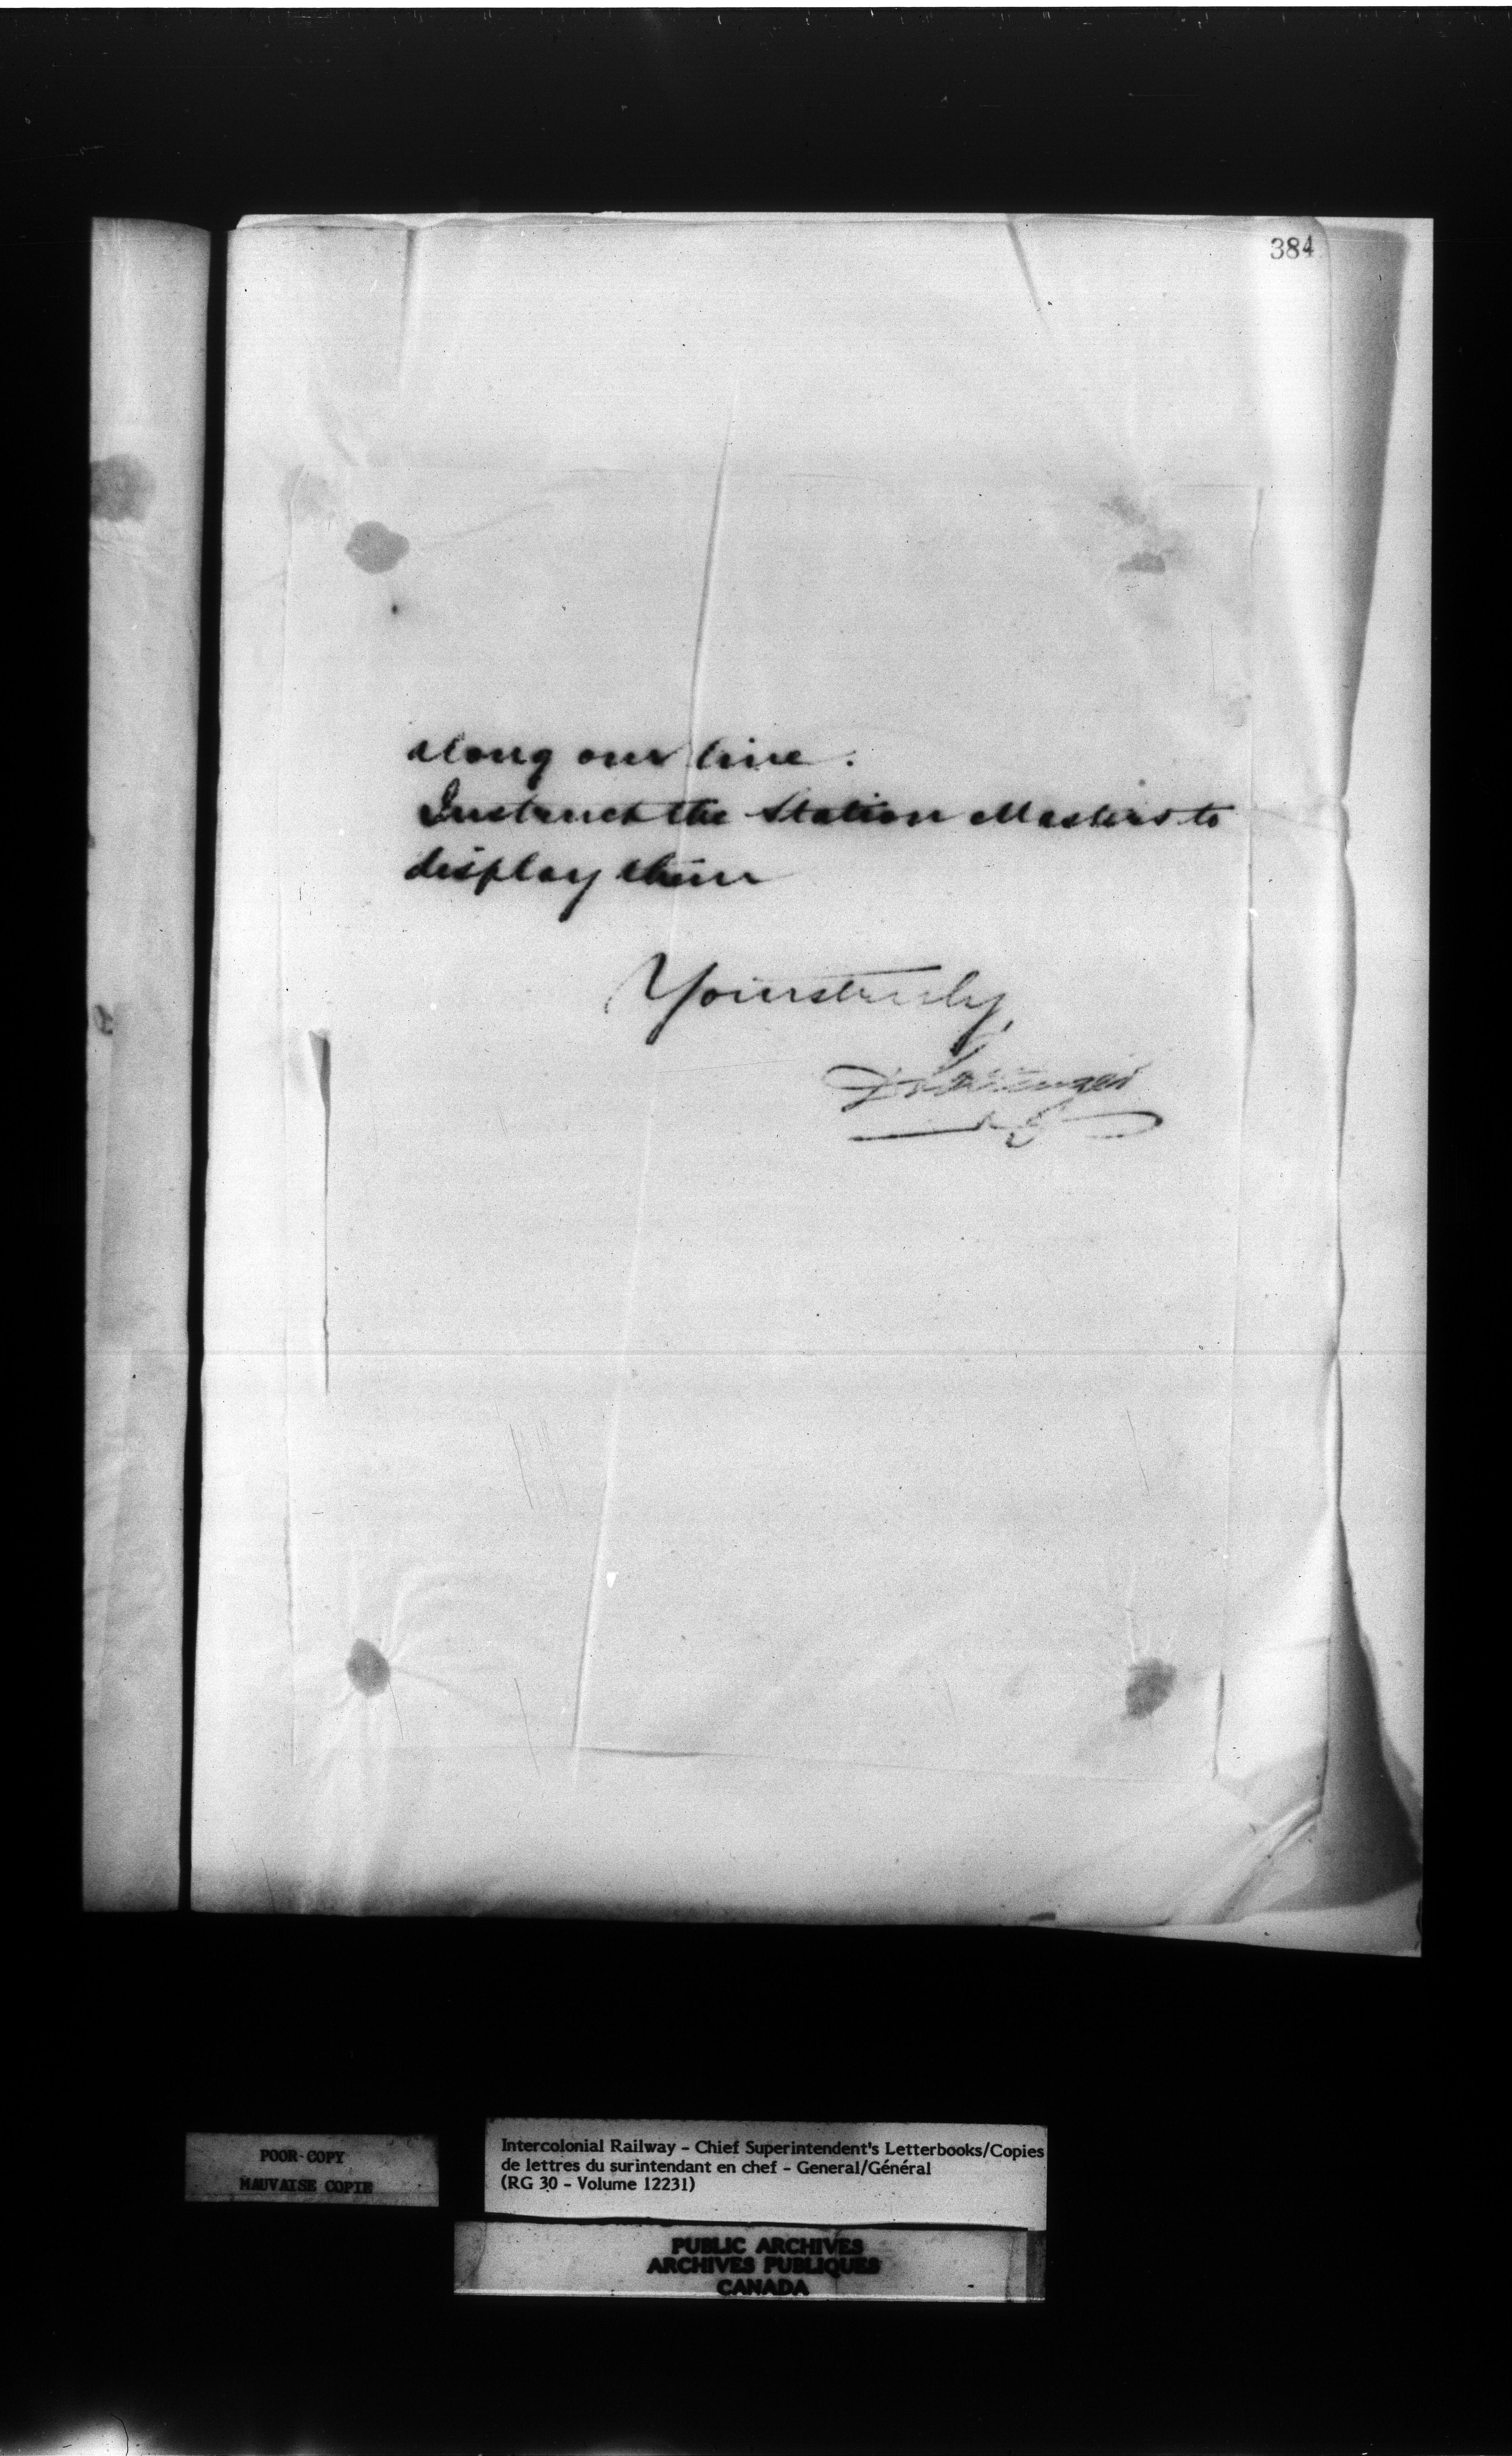 384
along our line.
Instruct the Station Masters to
display them
Yours truly,
POOR-COPY
MAUVAISE COPIE
Intercolonial Railway - Chief Superintendent's Letterbooks/Copies
de lettres du surintendant en chef - General/Général
(RG 30 - Volume 12231)
PUBLIC ARCHIVES
ARCHIVES PUBLIQUES
CANADA